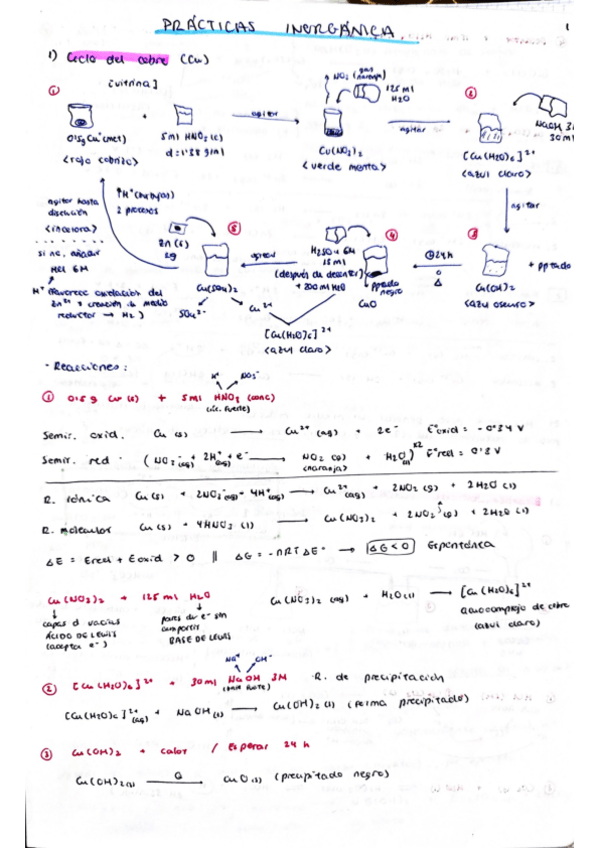 PRÁCTICAS INORGÁNICA
1
1) Ciclo del cobre (Cu)
[vitrina]
①
0'5g Cu (met)
<rojo cobrizo>
+
5ml HNO3 (c)
d = 1'38 g/ml
agitar
NO2 (gas naranja)
125 ml H2O
Cu(NO3)2
<verde menta>
agitar
②
NaOH 3M
30 ml
[Cu(H2O)6]2+
<azul claro>
agitar
③
+ pptado
Cu(OH)2
<azul oscuro>
24h
Δ
④
pptado negro
CuO
H2SO4 6M
15 ml
(después de decantar)
+ 200 ml H2O
agitar
⑤
Zn (s)
2g
Cu(SO4)2
SO4 2-
Cu 2+
[Cu(H2O)6]2+
<azul claro>
↑H+ (burbujas)
2 procesos
agitar hasta
disolución
<incolora>
si no, añadir
HCl 6M
H+ (favorece oxidación del
Zn2+ y creación de medio
reductor → H2)
· Reacciones:
H+ NO3-
① 0'5 g Cu (s) + 5 ml HNO3 (conc)
(ác. fuerte)
Semir. oxid. Cu (s) → Cu2+ (aq) + 2e- E°oxid = -0'34 V
Semir. red. (NO3- (aq) + 2H+ (aq) + e- → NO2 (g) + H2O (l)) x2 E°red = 0'8 V
(naranja)
R. iónica Cu (s) + 2NO3- (aq) + 4H+ (aq) → Cu2+ (aq) + 2NO2 (g) + 2H2O (l)
R. molecular Cu (s) + 4HNO3 (l) → Cu(NO3)2 + 2NO2 (g) + 2H2O (l)
ΔE = Ered + Eoxid > 0 || ΔG = -nRTΔE° → ΔG < 0 Espontánea
Cu(NO3)2 + 125 ml H2O Cu(NO3)2 (aq) + H2O (l) → [Cu(H2O)6]2+
capas d vacías
ÁCIDO DE LEWIS
(acepta e-)
pares de e- sin
compartir
BASE DE LEWIS
acuocomplejo de cobre
(azul claro)
Na+ OH-
② [Cu(H2O)6]2+ + 30 ml NaOH 3M R. de precipitación
(base fuerte)
[Cu(H2O)6]2+ (aq) + NaOH (l) → Cu(OH)2 (s) (forma precipitado)
③ Cu(OH)2 + calor / esperar 24 h
Cu(OH)2 (s) → CuO (s) (precipitado negro)